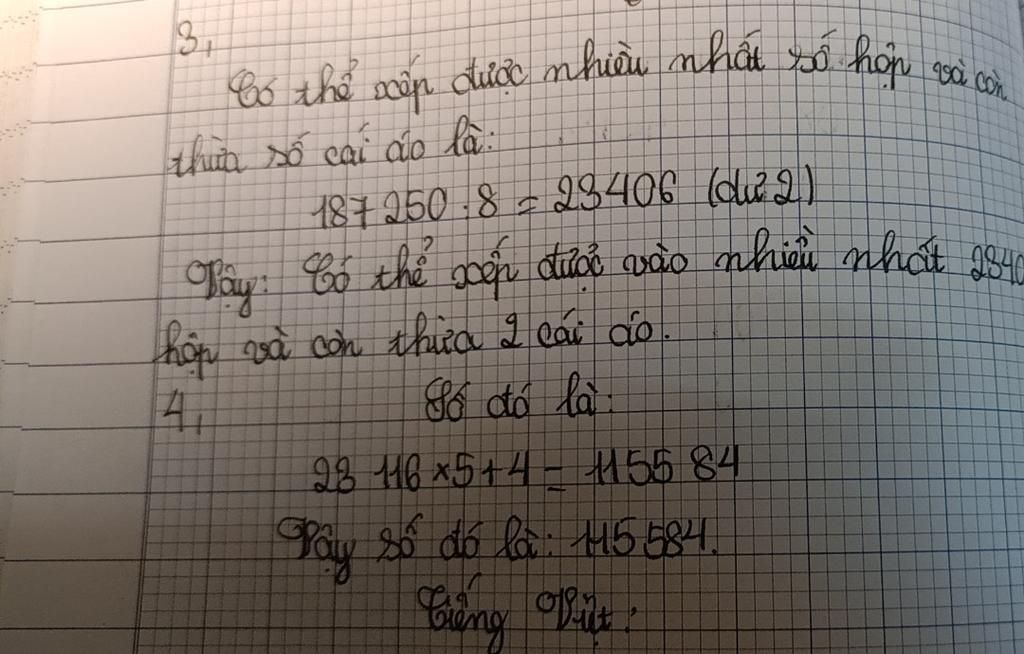 3,
Có thể xếp được nhiều nhất số hộp và còn
thừa số cái áo là:
187 250 : 8 = 23406 (dư 2)
Vậy: Có thể xếp được vào nhiều nhất 2340
hộp và còn thừa 2 cái áo.
4, Số đó là:
23 116 × 5 + 4 = 1155 84
Vậy số đó là: 115 584.
Tiếng Việt: